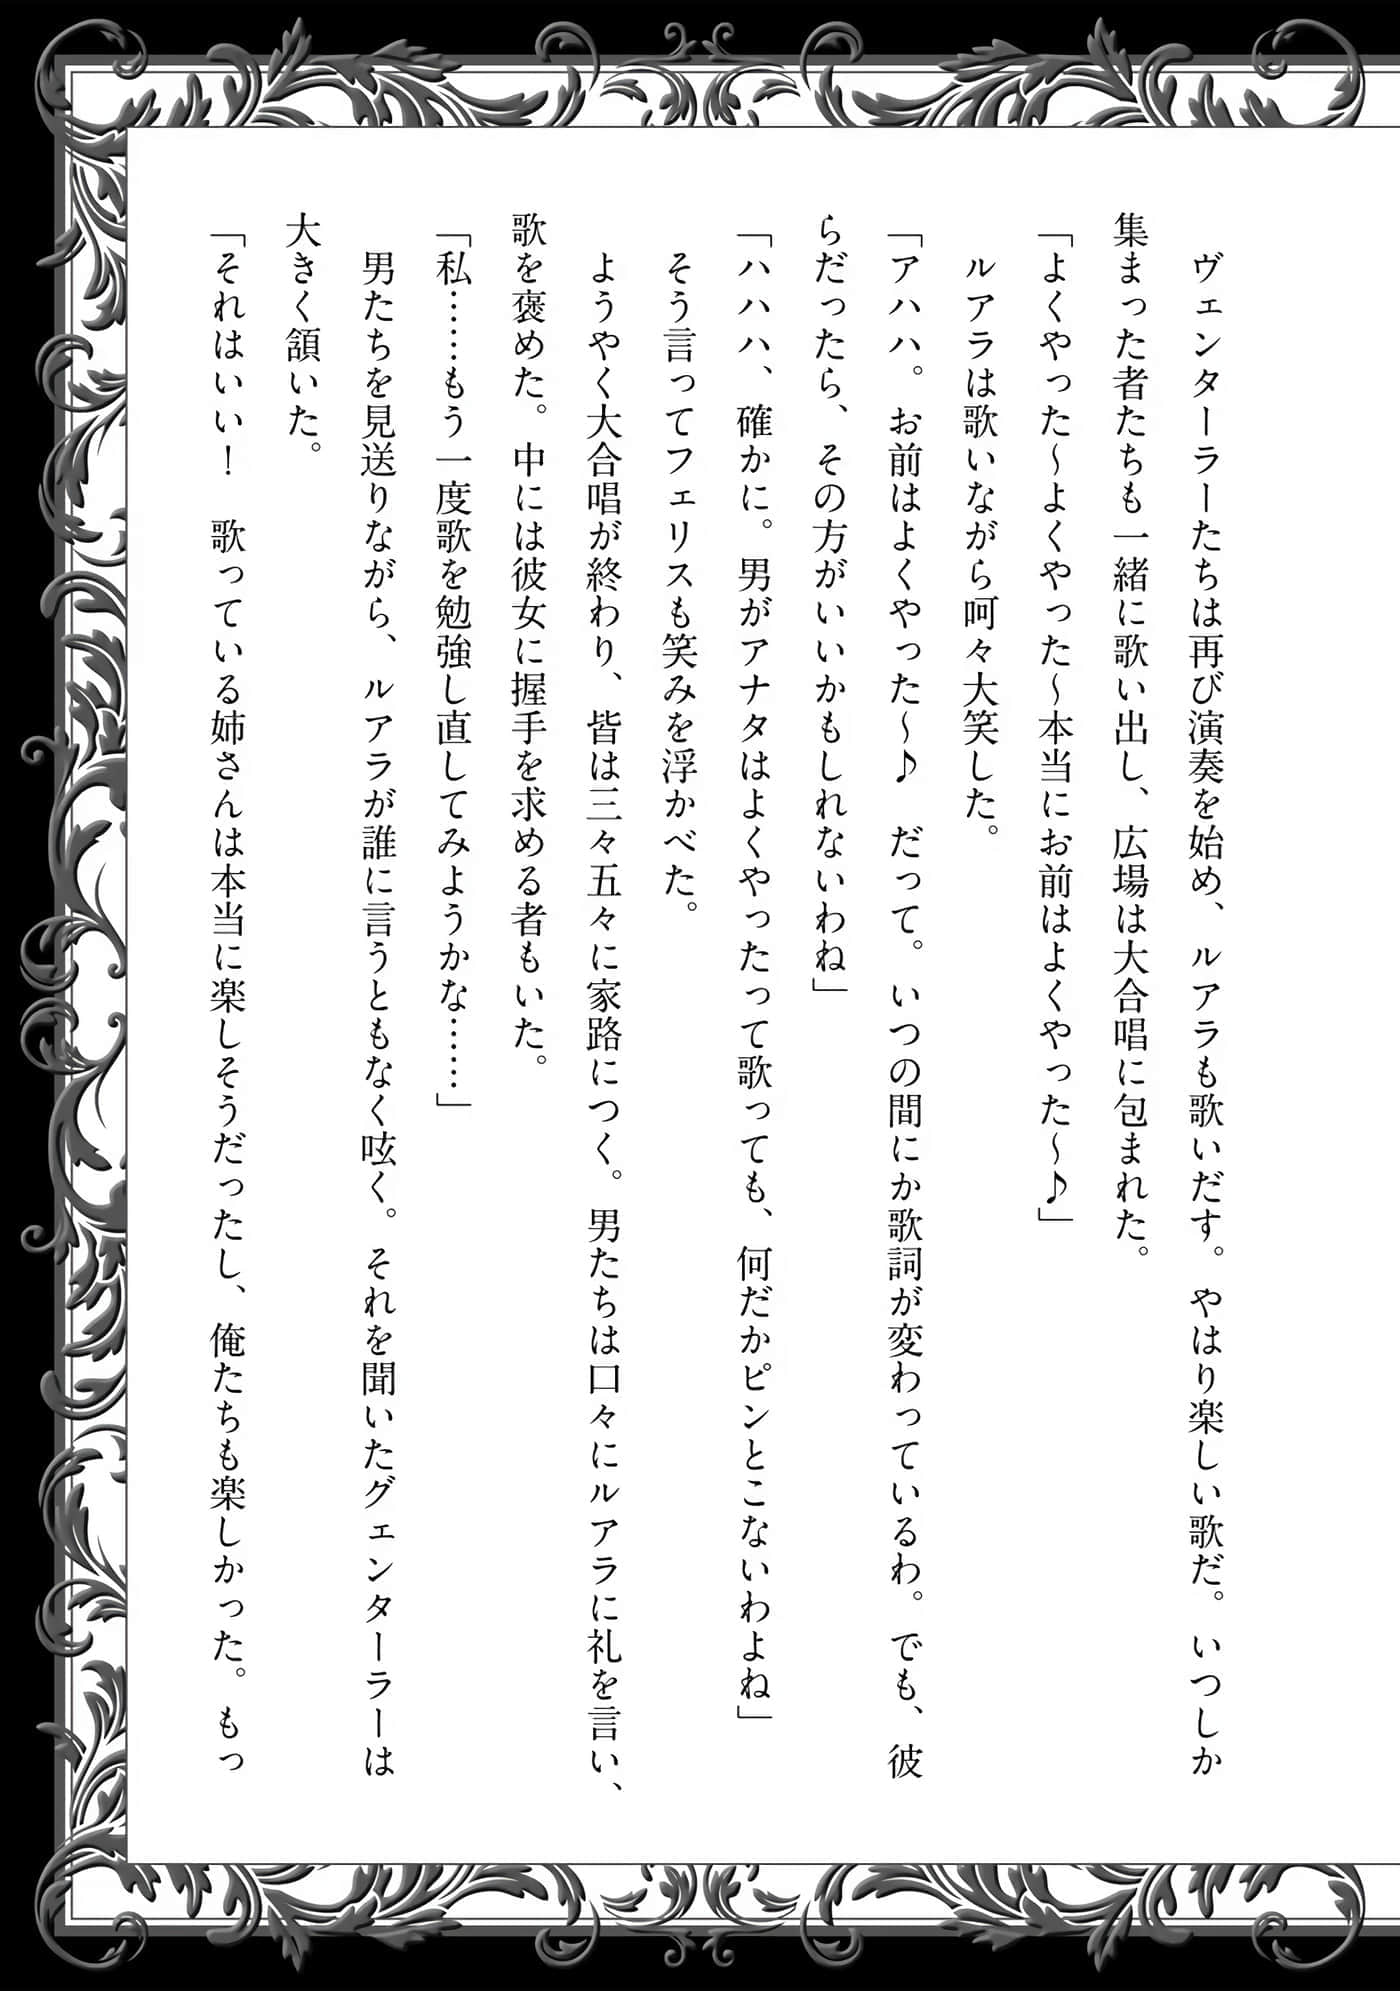 ヴェンターラーたちは再び演奏を始め、ルアラも歌いだす。やはり楽しい歌だ。いつしか
集まった者たちも一緒に歌い出し、広場は大合唱に包まれた。
「よくやった～よくやった～本当にお前はよくやった～♪」
　ルアラは歌いながら呵々大笑した。
「アハハ。お前はよくやった～♪　だって。いつの間にか歌詞が変わっているわ。でも、彼
らだったら、その方がいいかもしれないわね」
「ハハハ、確かに。男がアナタはよくやったって歌っても、何だかピンとこないわよね」
　そう言ってフェリスも笑みを浮かべた。
　ようやく大合唱が終わり、皆は三々五々に家路につく。男たちは口々にルアラに礼を言い、
歌を褒めた。中には彼女に握手を求める者もいた。
「私……もう一度歌を勉強し直してみようかな……」
　男たちを見送りながら、ルアラが誰に言うともなく呟く。それを聞いたグェンターラーは
大きく頷いた。
「それはいい！　歌っている姉さんは本当に楽しそうだったし、俺たちも楽しかった。もっ